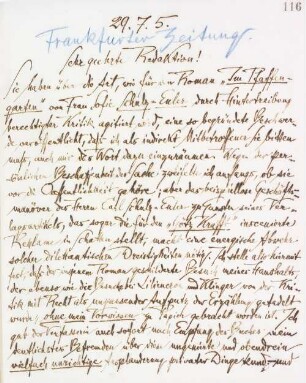 116
29.7.5.
Frankfurter Zeitung.
Sehr geehrte Redaktion!
Sie haben über die Art, wie für den Roman "Im Pfarr-
garten" von Frau Sofie Schulz-Euler durch Hintertreibung
berechtigter Kritik agitiert wird, eine so begründete Beschwerde
veröffentlicht, daß ich als indirekt Mitbetroffene Sie bitten
muß, auch mir das Wort dazu einzuräumen. Wegen der per-
sönlichen Beschaffenheit der Sache zweifle ich anfangs, ob sie
vor die Öffentlichkeit gehöre, aber das beispiellose Geschäfts-
manöver des Herrn Carl Schulz-Euler zu Gunsten seines
das sogar die für den inscenierte
Reklame in Schatten stellt, macht eine energische Abwehr
solcher dilettantischen Dreistigkeiten nötig. Ich stelle also hierauf
fest, daß der in jenem Roman geschilderte Besuch meines Haushalts,
der ebenso wie die von der Kri-
tik mit Recht als unpassender Aufputz der Erzählung getadelt
wurde, ohne mein Vorwissen zu Papier gebracht worden ist. Ich
gab der Verfasserin auch sofort nach Empfang des Buches mein
deutlichstes Befremden über diese ungebetene und obendrein
vielfach unrichtige Ausplauderung privater Dinge kund; und